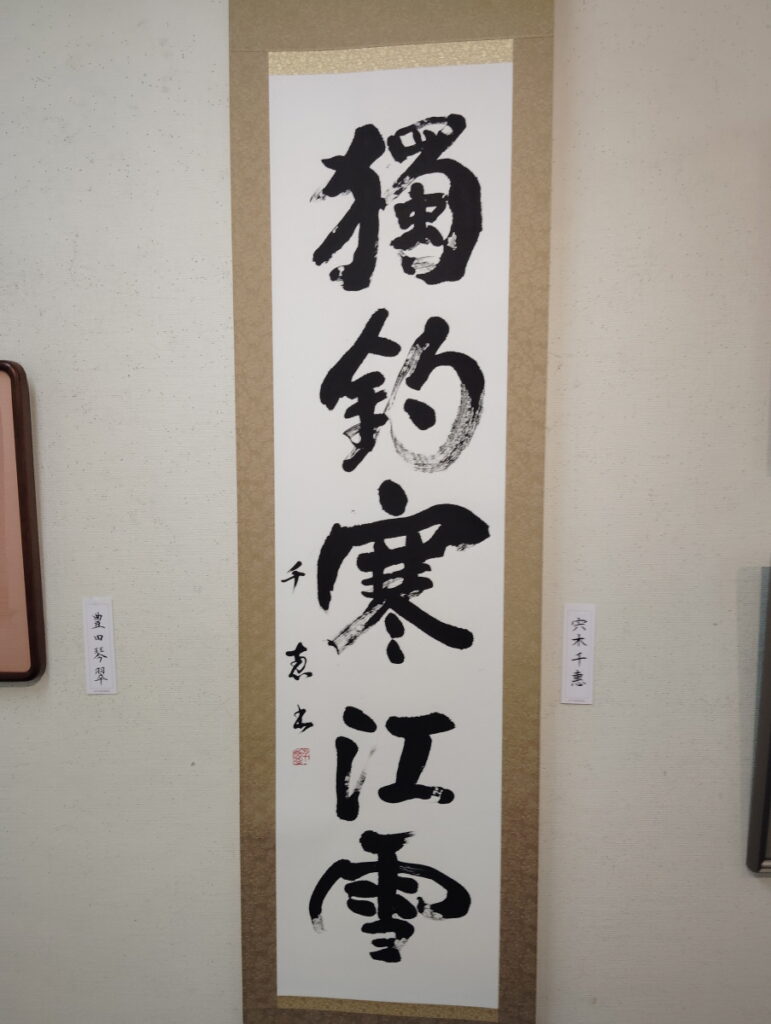 獨釣寒江雪
千恵書
宍木千恵
豊田琴翠